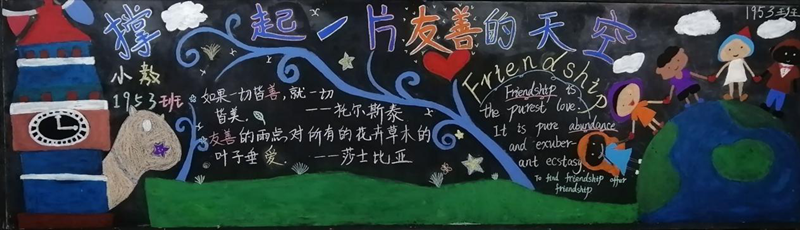 撑起一片友善的天空
1953班
小教
1953班
如果一切皆善，就一切
皆美．
——托尔斯泰
友善的雨点对所有的花卉草木的
叶子垂爱．
——莎士比亚
Friendship
Friendship is
the purest love.
It is pure abundance
and exuber-
ant ecstasy.
To find friendship offer
friendship